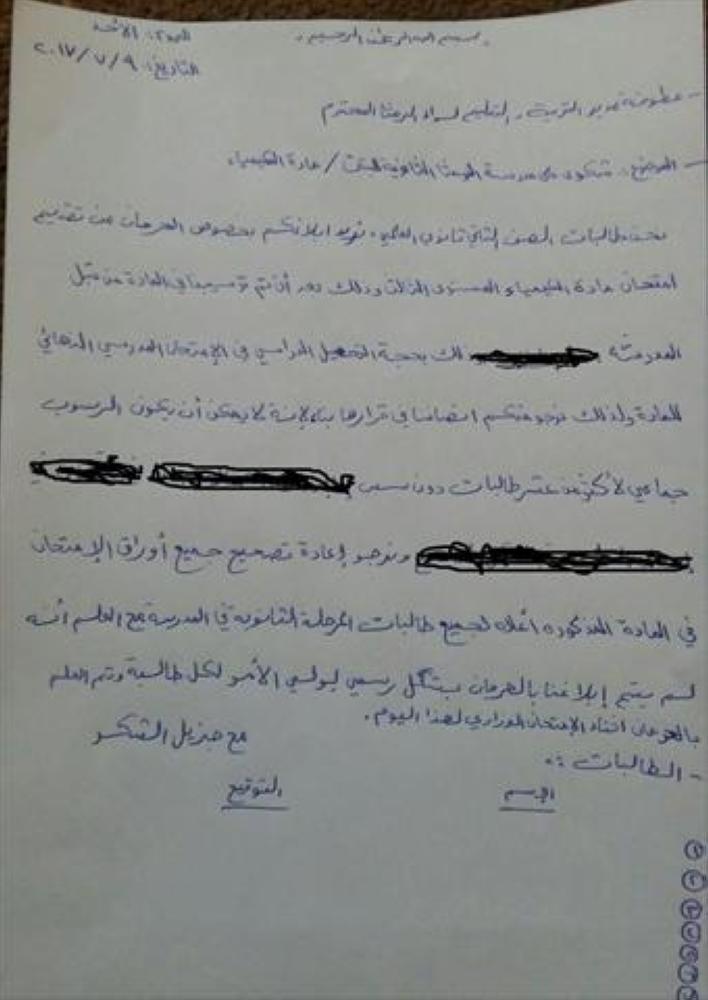 بسم الله الرحمن الرحيم
اليوم: الأحد
التاريخ: ٢٠١٧/٧/٩
- عطوفة مدير التربية والتعليم لواء الرمثا المحترم
- الموضوع: شكوى على مدرسة الرمثا الثانوية للبنات / مادة الكيمياء
نحن طالبات الصف الثاني ثانوي العلمي نود ابلاغكم بخصوص الحرمان من تقديم
امتحان مادة الكيمياء المستوى الثالث وذلك بعد أن تم ترسيبنا في المادة من قبل
المعلمة وذلك بحجة التحصيل الدراسي في الإمتحان المدرسي النهائي
للمادة ولذلك نرجو منكم انصافنا في قرارها بناء لإنه لا يمكن أن يكون الرسوب
جماعي لأكثر من عشر طالبات دون سبب
ونرجو إعادة تصحيح جميع أوراق الإمتحان
في المادة المذكورة أعلاه لجميع طالبات المرحلة الثانوية في المدرسة مع العلم أنه
لم يتم إبلاغنا بالحرمان بشكل رسمي لولي الأمر لكل طالبة وتم العلم
بالحرمان اثناء الإمتحان الوزاري لهذا اليوم.
مع جزيل الشكر
- الطالبات:
الإسم التوقيع